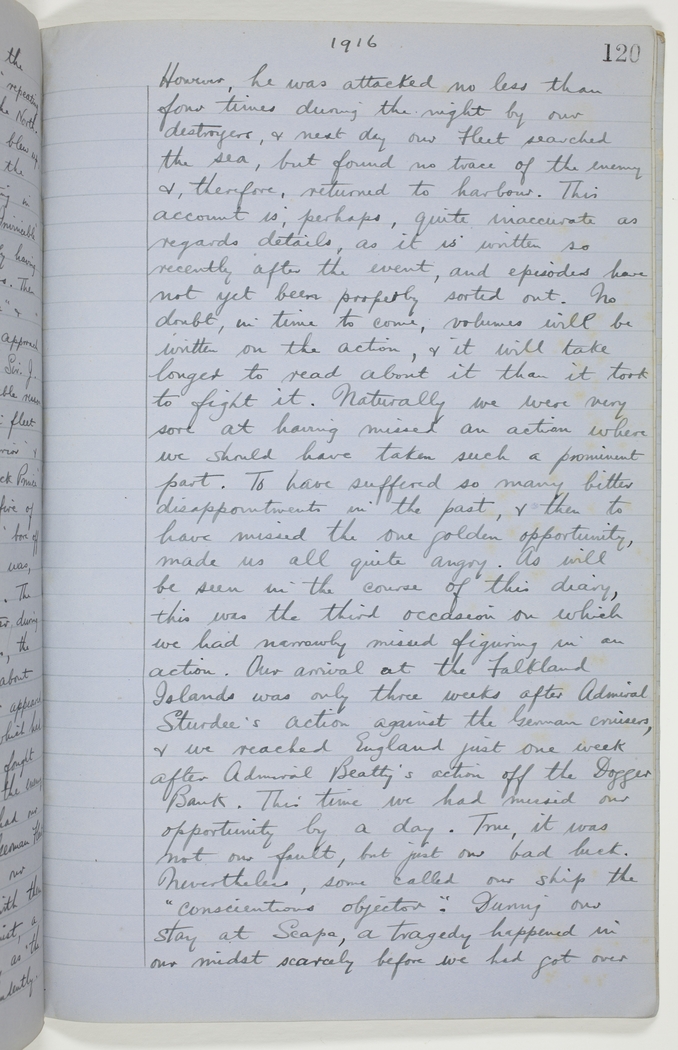 1916
120
However, he was attacked no less than
four times during the night by our
destroyers, & next day our Fleet searched
the sea, but found no trace of the enemy
&, therefore, returned to harbour. This
account is, perhaps, quite inaccurate as
regards details, as it is written so
recently after the event, and episodes have
not yet been properly sorted out. No
doubt, in time to come, volumes will be
written on the action, & it will take
longer to read about it than it took
to fight it. Naturally we were very
sore at having missed an action where
we should have taken such a prominent
part. To have suffered so many bitter
disappointments in the past, & then to
have missed the one golden opportunity,
made us all quite angry. As will
be seen in the course of this diary,
this was the third occasion on which
we had narrowly missed figuring in an
action. Our arrival at the Falkland
Islands was only three weeks after Admiral
Sturdee's action against the German cruisers,
& we reached England just one week
after Admiral Beatty's action off the Dogger
Bank. This time we had missed our
opportunity by a day. True, it was
not our fault, but just our bad luck.
Nevertheless, some called our ship the
"conscientious objector". During our
stay at Scapa, a tragedy happened in
our midst scarcely before we had got over
the
repeating
the North.
blew up
the
in
having
. Then
" &
approach
Sir. J.
fleet
&
ck Prince
five of
bore off
was,
. The
during
, the
about
appears
which had
fought
the enemy
had
German
our
with the
, a
, as the